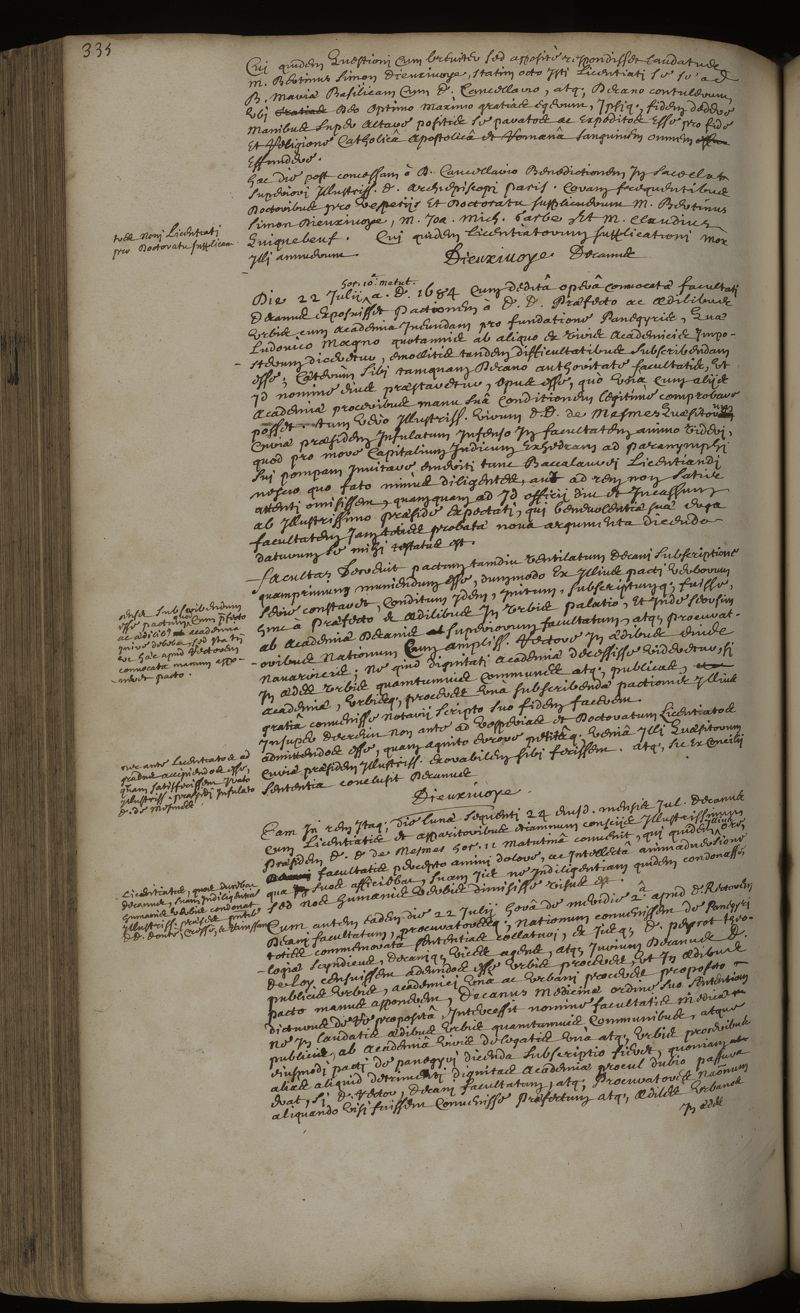 335
Cui quidem Quæstioni Cum breviter sed appositè respondisset laudatus
M. Bertinus Simon Dieuxivoye, statim octo Isti Licentiati se se ad
B. Mariæ Basilicam Cum D. Cancellario, atq; Decano contulerunt,
Ubj Gratias Deo Optimo Maximo gratias egerunt, Ipsiq; fidem dedere
Manibus super Altare positis se paratos ac Expeditos Esse pro fide
Et Religione Catholicâ Apostolicâ et Romanâ sanguinem omnem
Effundere.
Hac die post concessam à D. Cancellario Benedictionem In sacello
superiori Illustriss. D. Archiepiscopi Paris. Coram frequentibus
Doctoribus pro Vesperiis Et Doctoratu supplicuerunt M. Bertinus
Simon Dieuxivoye, M. Joa. Mich. Garbe Et M. Claudius
Quiquebeuf. Cui quidem Licentiatorum supplicationi mox
Illi annuerunt. Dieuxivoye Decanus
tres Novi Licentiati
pro Doctoratu supplicant
hor. 10.ª matut.
Die 22 Julij a. D. 1684 Cum deditâ operâ convocatæ facultati
Decanus exposuisset Pactionem à D. D. Præfecto ac Ædilibus
Urbis cum Academia Ineundam pro fundatione Panegyris, Quæ
Ludovico Magno quotannis ab aliquo ex viris Academicis Impo-
sterum diceretur, emollitis tandem difficultatibus subscribendam
esse; Cæterùm sibj tamquam Decano authoritate facultatis, Ut
Id nomine eius præstaretur, opus esse, quo Una cum aliis
Academiæ proceribus manu suâ Conditionem legitimè comprobare
posset. tum verò Illustriss. virum D.D. de Mesmes Quæsitorum
Curiæ præsidem Infulatum Infenso In facultatem animo videri,
quod pro more Capitalium Iudicum Exhedram ad Paranymphi
sui pompam Invitare emeriti tunc Baccalaurei Licentiandi
nescio quo fato minus diligentes, aut ad rem non satis
attenti omisissent, quamquam ad Id officij diu et Incassum
ab Illustrissimo præside Expectati, qui benevolentiæ suæ erga
facultatem Jam toties probatæ nova argumenta dicendo
daturum se mihj testatus est.
- facultas Decrevit pactum tamdiu ventilatum Decani Subscriptione
quamprimum muniendum esse, dummodo Ex Illius pacti verborum
serie constaret, Conditum Idem, Initum, subscriptumq; fuisse,
hinc à Præfecto et Ædilibus In Urbis palatio, et Inde seorsim
ab Academiæ Decanis superiorum facultatum, atq; procurat-
oribus Nationum Cum ampliss. Rectore In Ædibus eiusde
Navarricis; Ne quid dignitati Academiæ decessisse videretur, si
In æde Urbis quantumvis communes atq; publicas,
Academiæ, Urbisq; proceres Una subscribendæ pactionis Illius
gratiâ convenisse Notarij scripto suo fidem facerent.
Insuper Decretum Non ante ad Vesperias et Doctoratum Licentiatos
admittendos esse, quam agnito errore petitâq. Veniâ Illi Quæsitorum
Curiæ præsidem Illustriss. Exorabilem sibj fecissent. atq; sic Ex Concilij
sententia conclusit Decanus
Dieuxivoye.
Censet subscribendum
esse pactum quo cum præfecto
ac ædilibus academia
Inire debebat, sed Ita Ut
ex hac apud Rectorem
convocata manum appo-
-neret pacto.
nec ante Licentiatos ad
gradus accipiendos esse,
quam satisfecissent Irato
Illustriss. præsidj Infulato
D. de Mesmes
Eam In rem Itaq; die lunæ sequenti 24 eiusd. mensis Jul. Decanus
cum Licentiatis et apparitoribus etiamnum conscijs Illustrissimum
Præsidem D. D de Mesmes hor. 11 Matutinâ convenit, qui quidem
facultatis percepto animi dolore, ac Intellectâ animadversione
qua In suos afficiebar, suam Ijs ne Indiligentiam quidem condonasse,
sed nos humanis Verbis dimisisse visus est.
Licentiatis, quos ducebat
Decanus, suam Indiligentiam
humanis verbis condonat
Illustriss. præses
Cum autem eadem die 22 Julij horâ de meridie 2.â apud D. Rectorem
Decani facultatum, procuratoresq; Nationum convenissent de Panegyri
toties commemorata sententias collaturi, et Idq; D. Peyrot theo-
-logiæ syndicus, Decaniq; vices agens, atq; Iurium Decanus D.
De loy censuissent adeundos esse Urbis proceres, Ut In Ædibus
publicis Urbis, academici Una ac Urbani proceres proposito
pacto manus apponerent, Decanus Medicinæ ordine suo sententiam
dicturus de Re propositâ, Intercessit nomine facultatis Medicæ
Ne In laudatis ædibus Urbis quantumvis Communibus, atque
publicis, ab Academiâ viris delegatis Una atq; Urbis proceribus
eiusmodi pacti de panegyri dicenda Subscriptio fieret, quoniam
alias aliquid detrimenti dignitas Academiæ procul dubio passura
erat, si D. Rector, Decani facultatum, atq; Procuratores Naõnum
aliquando visi fuissent Convenisse Præfectum atq; Ædiles Urbanos
In æde